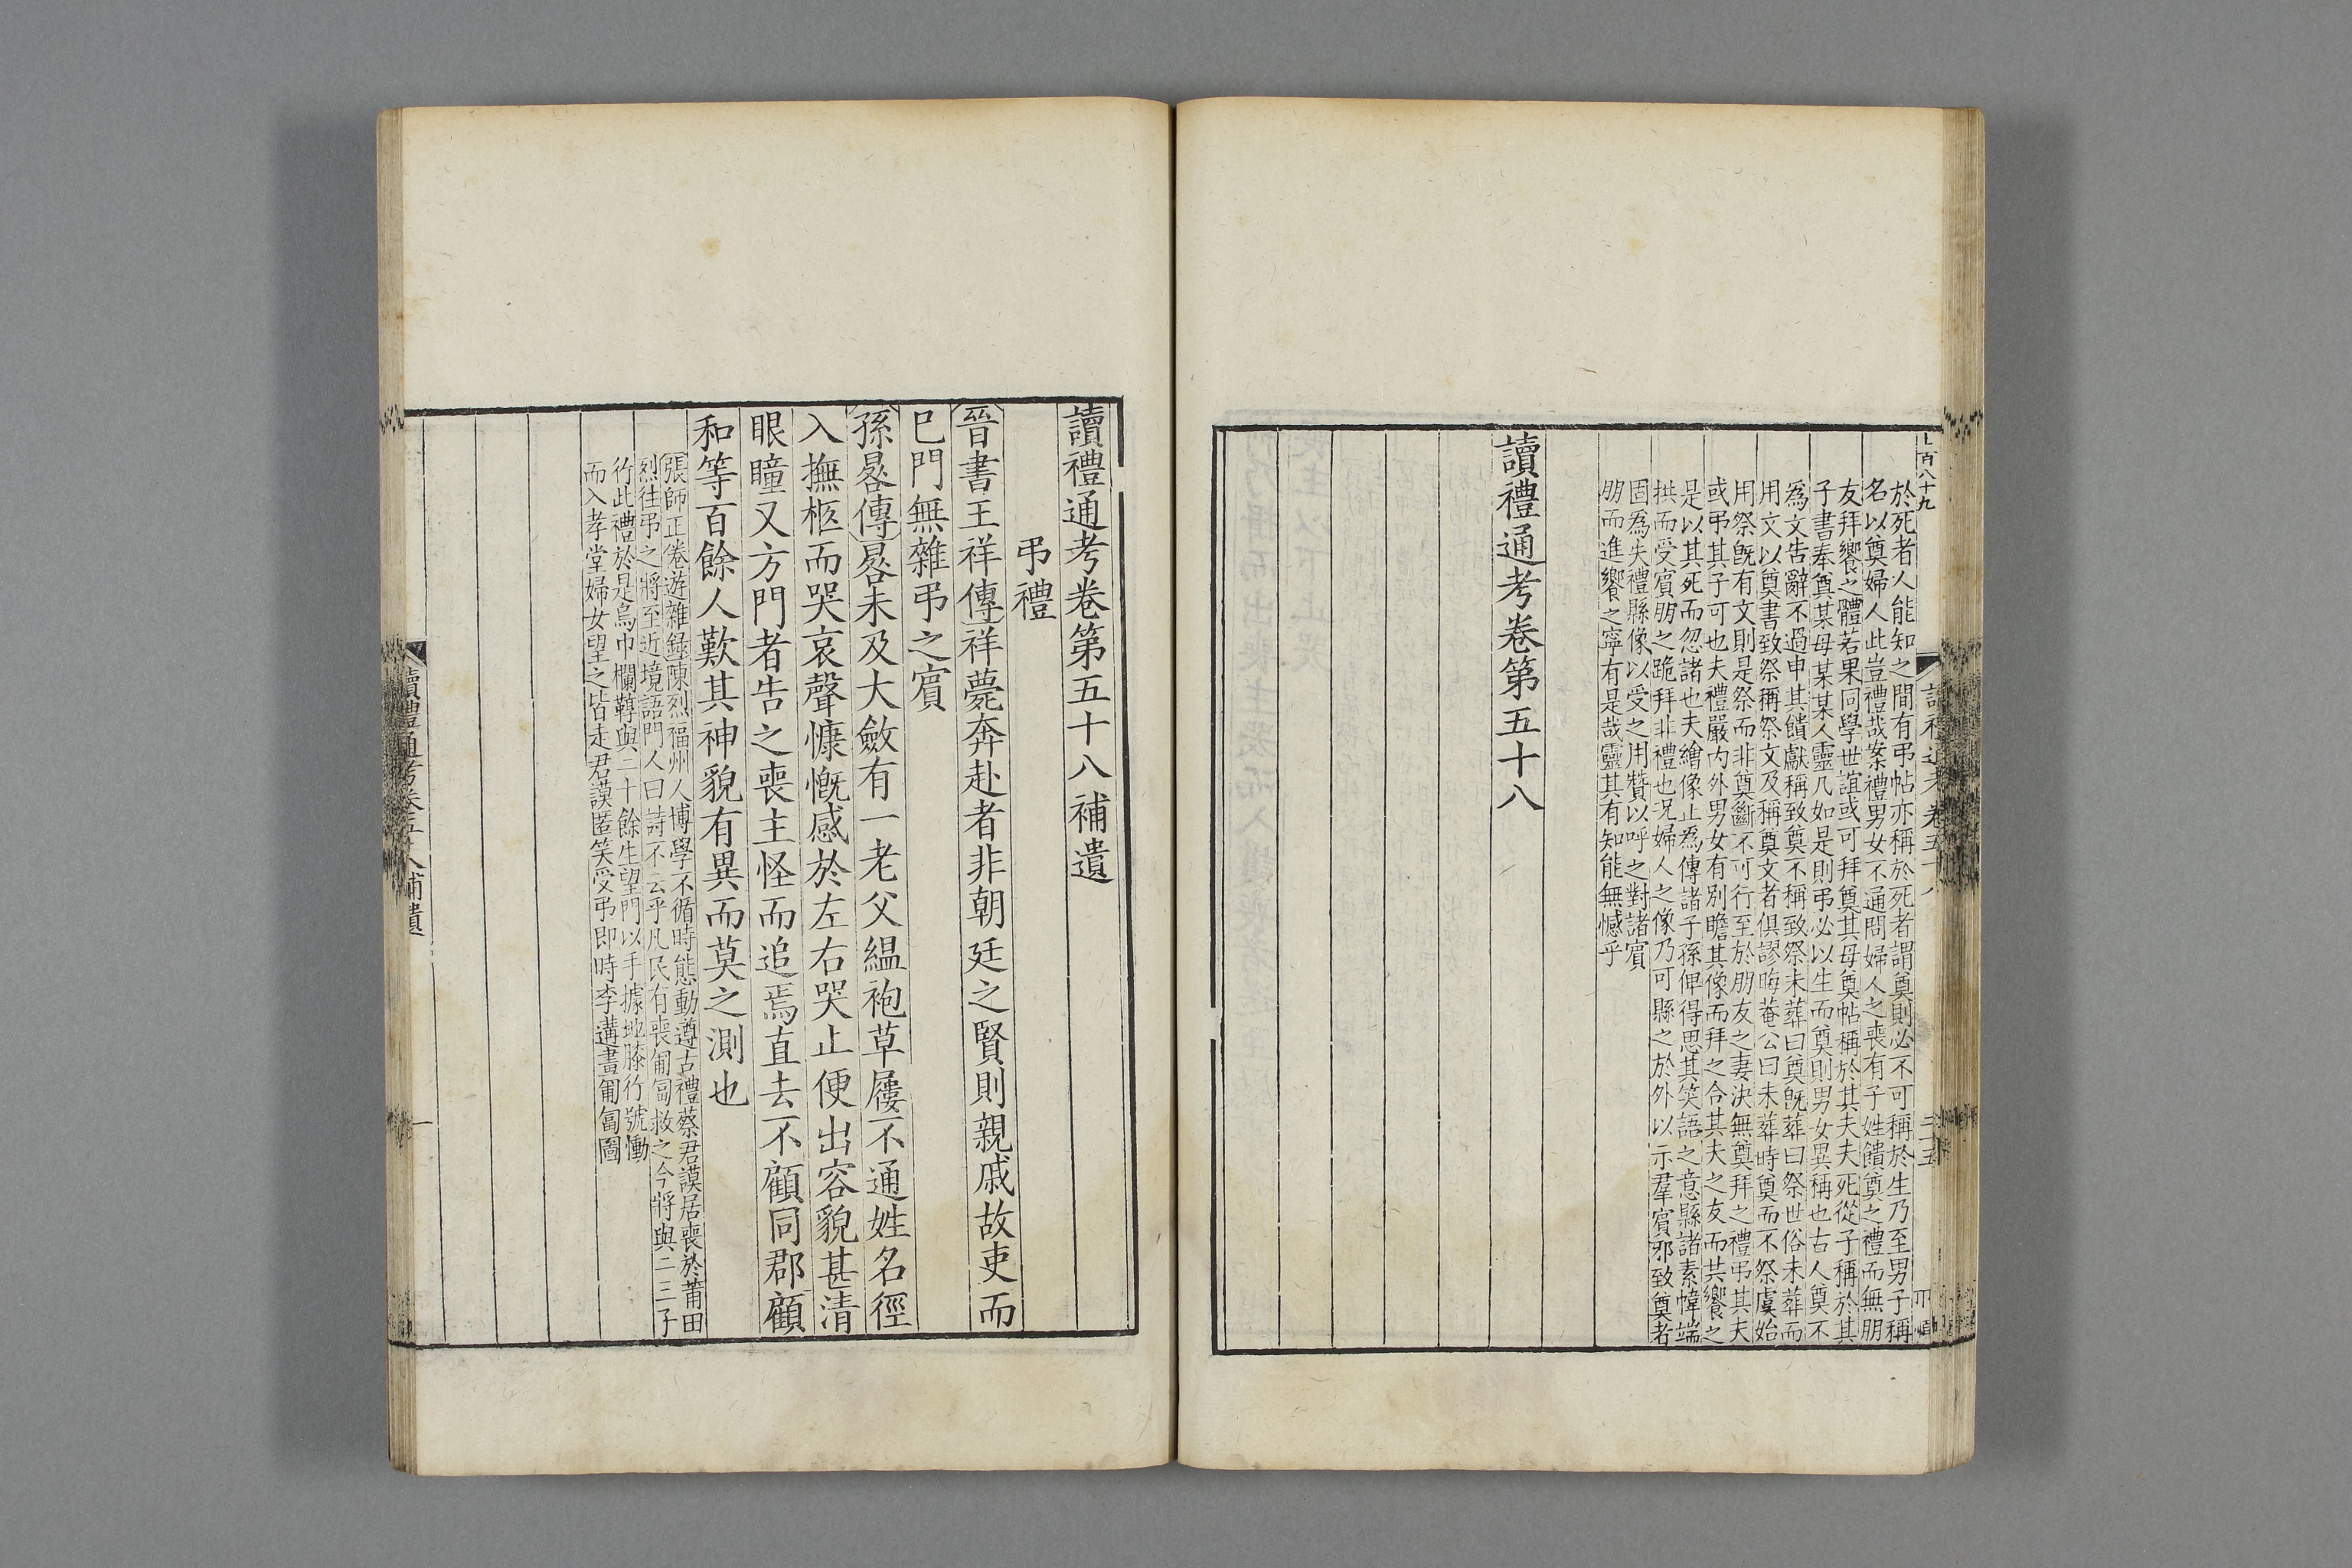 於死者人能知之間有弔帖亦稱於死者謂奠則必不可稱於生乃至男子稱
名以奠婦人此豈禮哉案禮男女不通問婦人之喪有子姓饋奠之禮而無朋
友拜饗之體若果同學世誼或可拜奠其母奠帖稱於其夫夫死從子稱於其
子書奉奠某母某某人靈几如是則弔必以生而奠則男女異稱也古人奠不
爲文告辭不過申其饋獻稱致奠不稱致祭未葬曰奠既葬曰祭世俗未葬而
用文以奠書致祭稱祭文及稱奠文者俱謬晦菴公曰未葬時奠而不祭虞始
用祭既有文則是祭而非奠斷不可行至於朋友之妻決無奠拜之禮弔其夫
或弔其子可也夫禮嚴內外男女有別瞻其像而拜之合其夫之友而共饗之
是以其死而忽諸也夫繪像止爲傳諸子孫俾得思其笑語之意縣諸素幃端
拱而受賓朋之跪拜非禮也況婦人之像乃可縣之於外以示羣賓邪致奠者
固爲失禮縣像以受之用贊以呼之對諸賓
朋而進饗之寧有是哉靈其有知能無憾乎
讀禮通考卷第五十八
讀禮通考卷第五十八補遺
弔禮
晉書王祥傳祥薨奔赴者非朝廷之賢則親戚故吏而
巳門無雜弔之賓
孫晷傳晷未及大斂有一老父縕袍草屨不通姓名徑
入撫柩而哭哀聲慷慨感於左右哭止便出容貌甚清
眼瞳又方門者告之喪主怪而追焉直去不顧同郡顧
和等百餘人歎其神貌有異而莫之測也
張師正倦遊雜録陳烈福州人博學不循時態動遵古禮蔡君謨居喪於莆田
烈往弔之將至近境語門人曰詩不云乎凡民有喪匍匐救之今將與二三子
行此禮於是烏巾襴鞟與二十餘生望門以手據地膝行號慟
而入孝堂婦女望之皆走君謨匿笑受弔即時李遘畫匍匐圖
讀禮通考卷五十八補遺
一